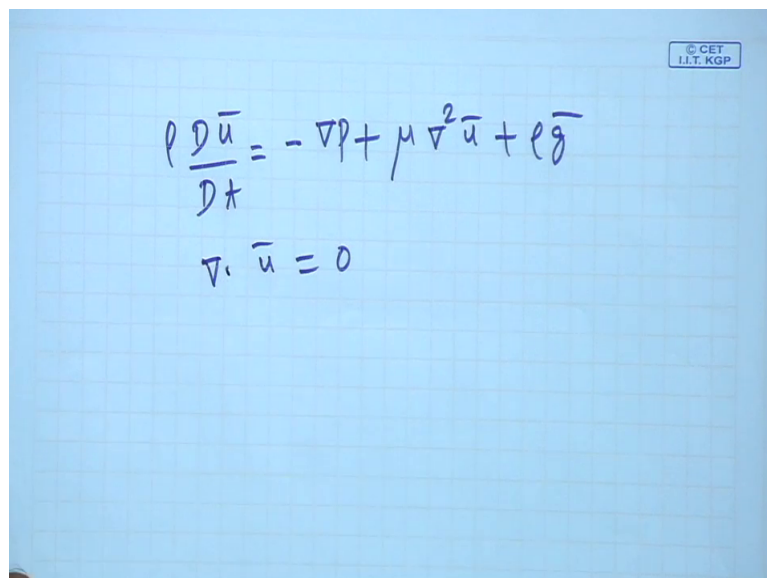 © CET
I.I.T. KGP
ρ Dū/Dt = - ∇p + μ ∇²ū + ρḡ
∇. ū = 0